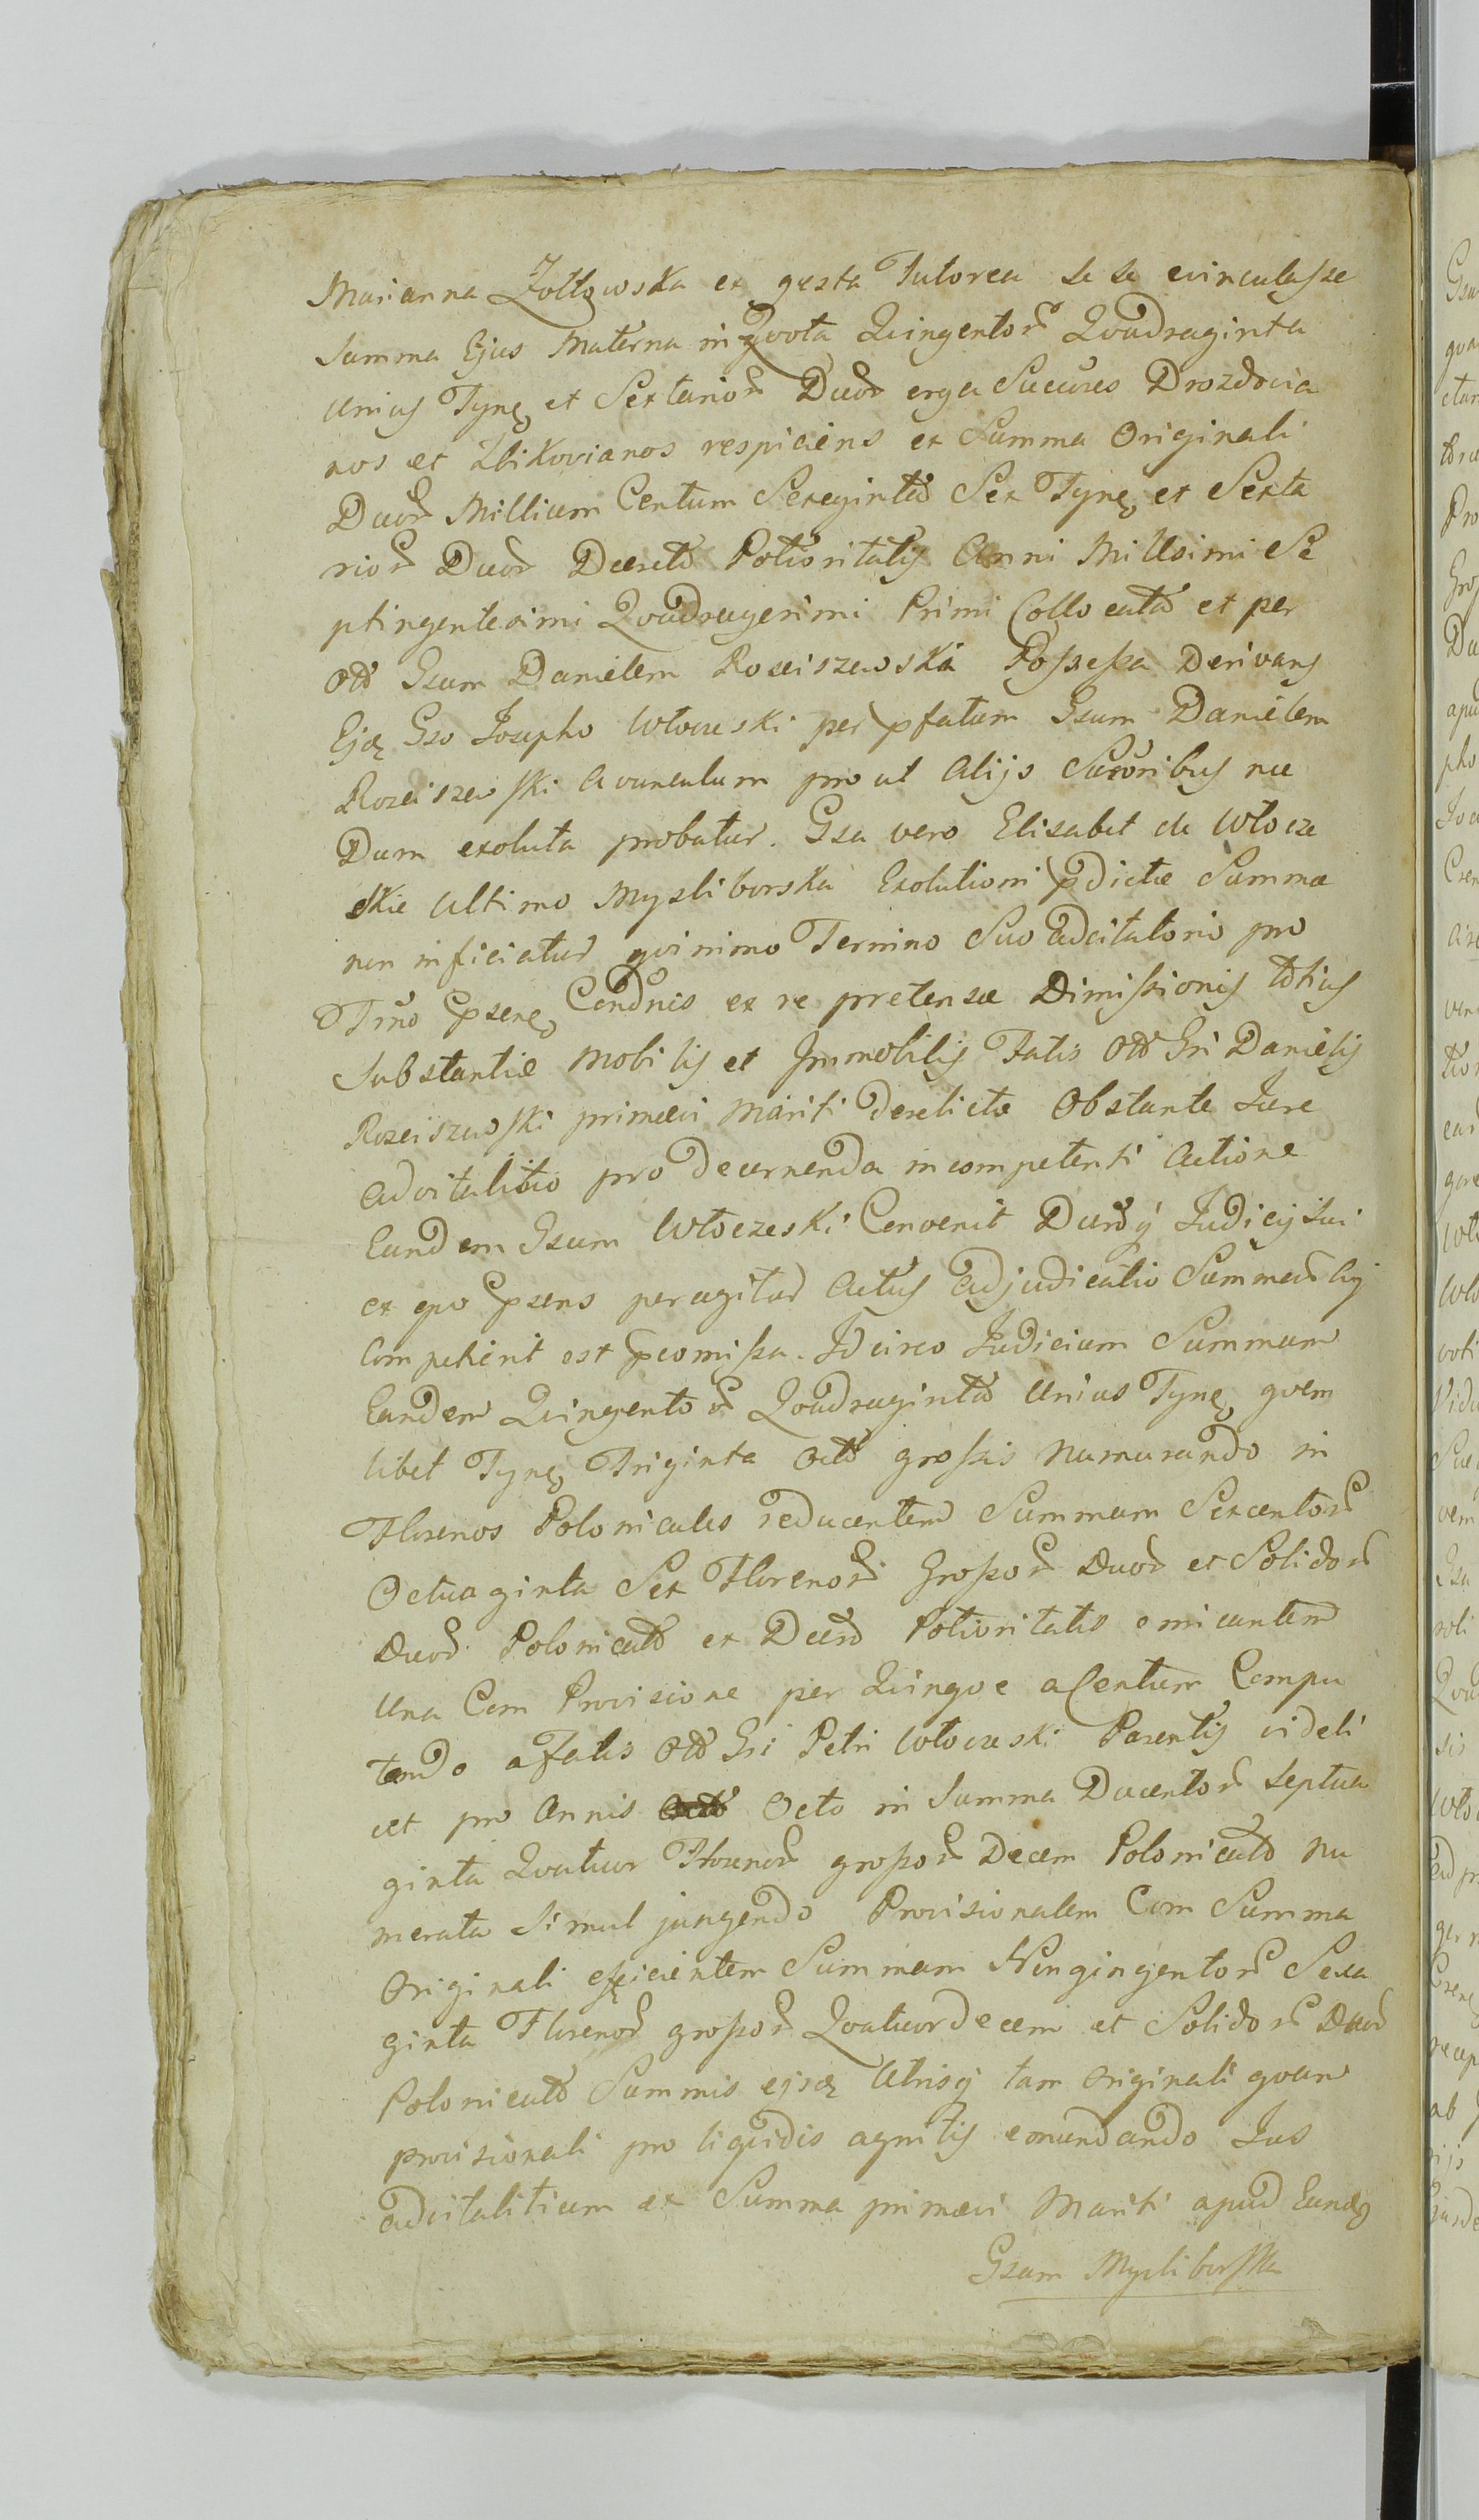 Marianna Żołtowska ex gesta Tutorea se se evinculasse
Summa Ejus Materna in Qvota Qvingentor Qvadraginta
Unius Tynf, et Sextarior Duor erga Sucores Drozdovia
nos et Zbikovianos respiciens ex Summa Originali
Duor Millium Centum Sexaginta Sex Tynf, et Sexta
rior Duor Decreto Potioritatis Anni Millesimi Se
ptingentesimi Qvadragesimi Primi Collocata et per
Old Gsum Danielem Rosciszewski Possessa Derivans
Ejq Gso Josepho Włoczeski per pfatum Gsum Danielem
Rozciszewski Avunculum pro ut alijs Sucoribus nec
Dum exoluta probatur. Gsa vero Elisabet de Włocze
skie Ultimo Mysliborska Exolutioni pdictæ Summæ
non inficiatur qvinimo Termino Suo adcitatorio pro
Trno psenе, Condnis ex re pretensæ Dimissionis totius
Substantiæ Mobilis et Immobilis Fatis Old Gsi Danielis
Rozciszewski primævi Mariti derelictæ Obstante Jure
advitalitio pro decernenda incompetenti Actione
Eundem Gsum Włoczeski Convenit Dumq Judicij sui
ex qvo psens peragitur Actus adjudicatio Summar hij
Competierit est promissa. Idcirco Judicium Summam
Eandem Qvingentor Qvadraginta Unius Tynf, qvem
libet Tynf, Triginta Octo grossis Numerando in
Florenos Polonicales reducentem Summam Sexcentor
Octuaginta Sex Florenor Grossor Duor et Solidor
Duor Polonicald ex Decrd Potioritatis emicantem
Una Cum Provisione per Qvinqve a Centum Compu
tando a Fatis Old Gsi Petri Włoczeski Parentis videli
cet pro Annis Octo in Summa Ducentor Septua
ginta Qvatuor Florenor grossor Decem Polonicald Nu
merata Simul jungendo Provisionalem Cum Summa
Originali efficientem Summam Nongingentor Sexa
ginta Florenor grossor Qvatuordecem et Solidor Duor
Polonicald Summis ejsdq Utrisq tam Originali qvam
provisionali pro liqvidis agnitis emundando Jus
advitalitium ex Summa primævi Mariti apud Eandq
Gsam Mysliborska